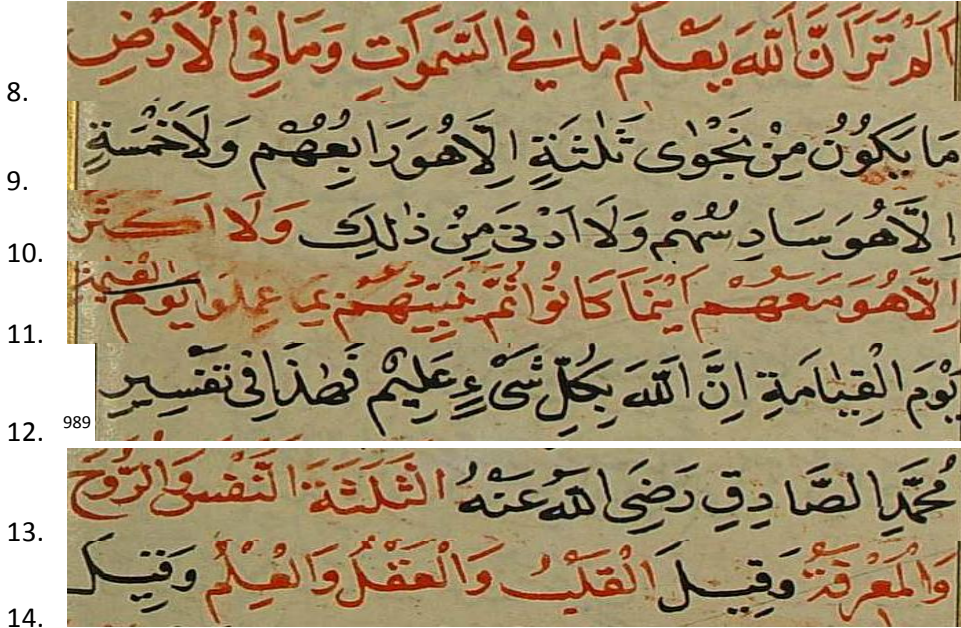 8. اَلَمْ تَرَ اَنَّ اللّٰهَ يَعْلَمُ مَا فِي السَّمٰوَاتِ وَمَا فِي الْاَرْضِ
9. مَا يَكُوْنُ مِنْ نَجْوٰى ثَلٰثَةٍ اِلَّا هُوَ رَابِعُهُمْ وَلَا خَمْسَةٍ
10. اِلَّا هُوَ سَادِسُهُمْ وَلَا اَدْنٰى مِنْ ذٰلِكَ وَلَا اَكْثَرَ
11. اِلَّا هُوَ مَعَهُمْ اَيْنَمَا كَانُوْا ثُمَّ يُنَبِّئُهُمْ بِمَا عَمِلُوْا يَوْمَ الْقِيٰمَةِ
12. يَوْمَ الْقِيَامَةِ اِنَّ اللّٰهَ بِكُلِّ شَيْءٍ عَلِيْمٌ فَهٰذَا فِي تَفْسِيْرِ 989
13. مُحَمَّدِ الصَّادِقِ رَضِيَ اللّٰهُ عَنْهُ الثَّلٰثَةَ النَّفْسُ وَالرُّوْحُ
14. وَالْمَعْرِفَةُ وَقِيْلَ الْقَلْبُ وَالْعَقْلُ وَالْعِلْمُ وَقِيْلَ